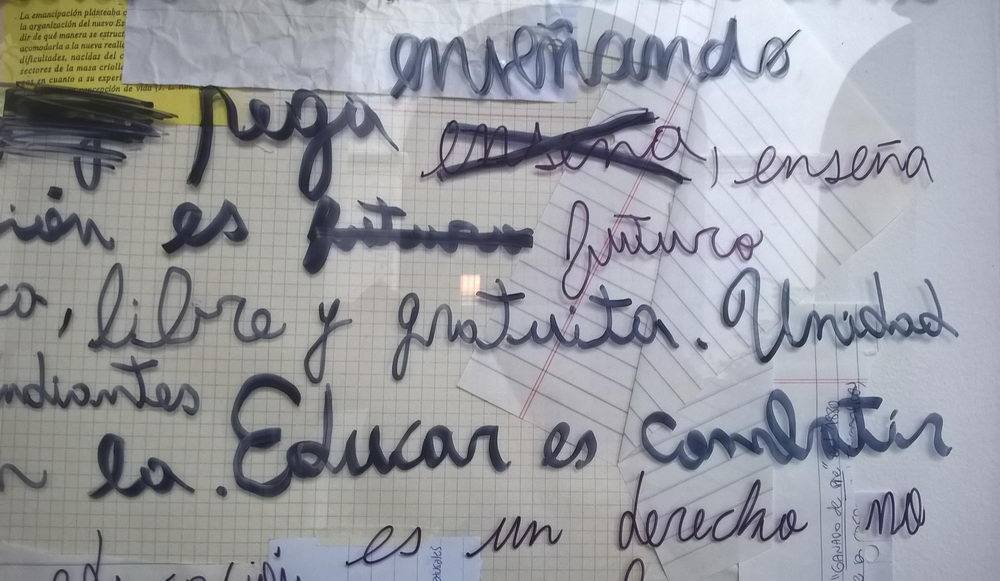 La emancipación planteaba
la organización del nuevo Es
dir de qué manera se estruct
acomodarla a la nueva reali
dificultades, nacidas del c
sectores de la masa criol
en cuanto a su experi
cepción de vida
enseñando
pega enseña, enseña
ión es futuro futuro
ca, libre y gratuita. Unidad
udiantes
la. Educar es combatir
es un derecho no
"GANADO de PIE"